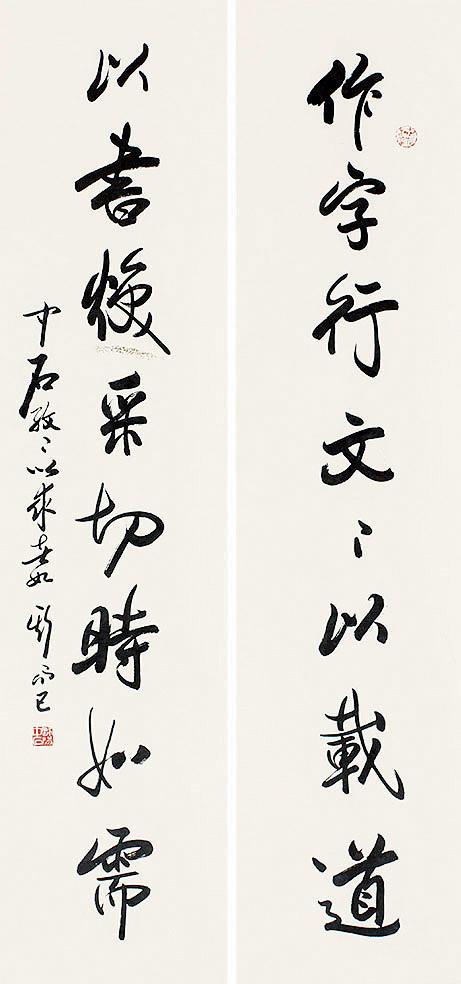 作字行文〻以載道
以書煥采切時如需
中石孜〻以求 如斯而已